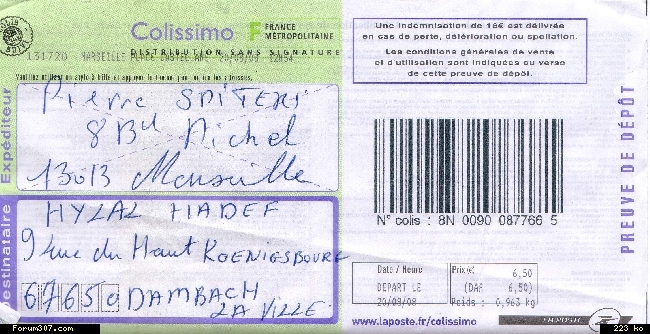 Colissimo F FRANCE MÉTROPOLITAINE
DISTRIBUTION SANS SIGNATURE
131720 MARSEILLE PLACE CASTELLANE 20/09/08 12H54
Expéditeur
Pierre SPITERI
8 Bd Michel
13013 Marseille
Destinataire
HYLAL HADEF
9 rue du Haut KOENIGSBOURG
67650 DAMBACH
LA VILLE
Une indemnisation de 16€ est délivrée
en cas de perte, détérioration ou spoliation.
Les conditions générales de vente
et d'utilisation sont indiquées au verso
de cette preuve de dépôt.
N° colis : 8N 0090 087766 5
PREUVE DE DÉPÔT
Date / Heure
DEPART LE
20/09/08
Prix (€) 6,50
(DAF 6,50)
Poids : 0,963 kg
www.laposte.fr/colissimo
LA POSTE
Forum307.com
223 ko